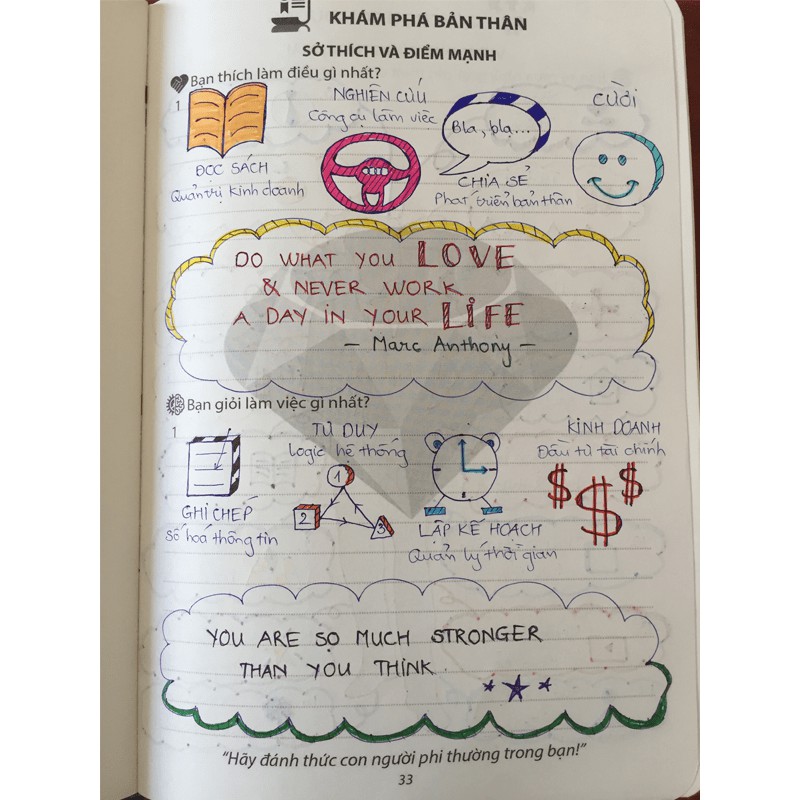 KHÁM PHÁ BẢN THÂN
SỞ THÍCH VÀ ĐIỂM MẠNH
Bạn thích làm điều gì nhất?
1
ĐỌC SÁCH
Quản trị kinh doanh
NGHIÊN CỨU
Công cụ làm việc
Bla, bla...
CHIA SẺ
Phát triển bản thân
CƯỜI
DO WHAT YOU LOVE
& NEVER WORK
A DAY IN YOUR LIFE
- Marc Anthony -
Bạn giỏi làm việc gì nhất?
1
GHI CHÉP
Số hoá thông tin
TƯ DUY
Logic hệ thống
1
2
3
LẬP KẾ HOẠCH
Quản lý thời gian
KINH DOANH
Đầu tư tài chính
$ $ $
YOU ARE SO MUCH STRONGER
THAN YOU THINK
"Hãy đánh thức con người phi thường trong bạn!"
33